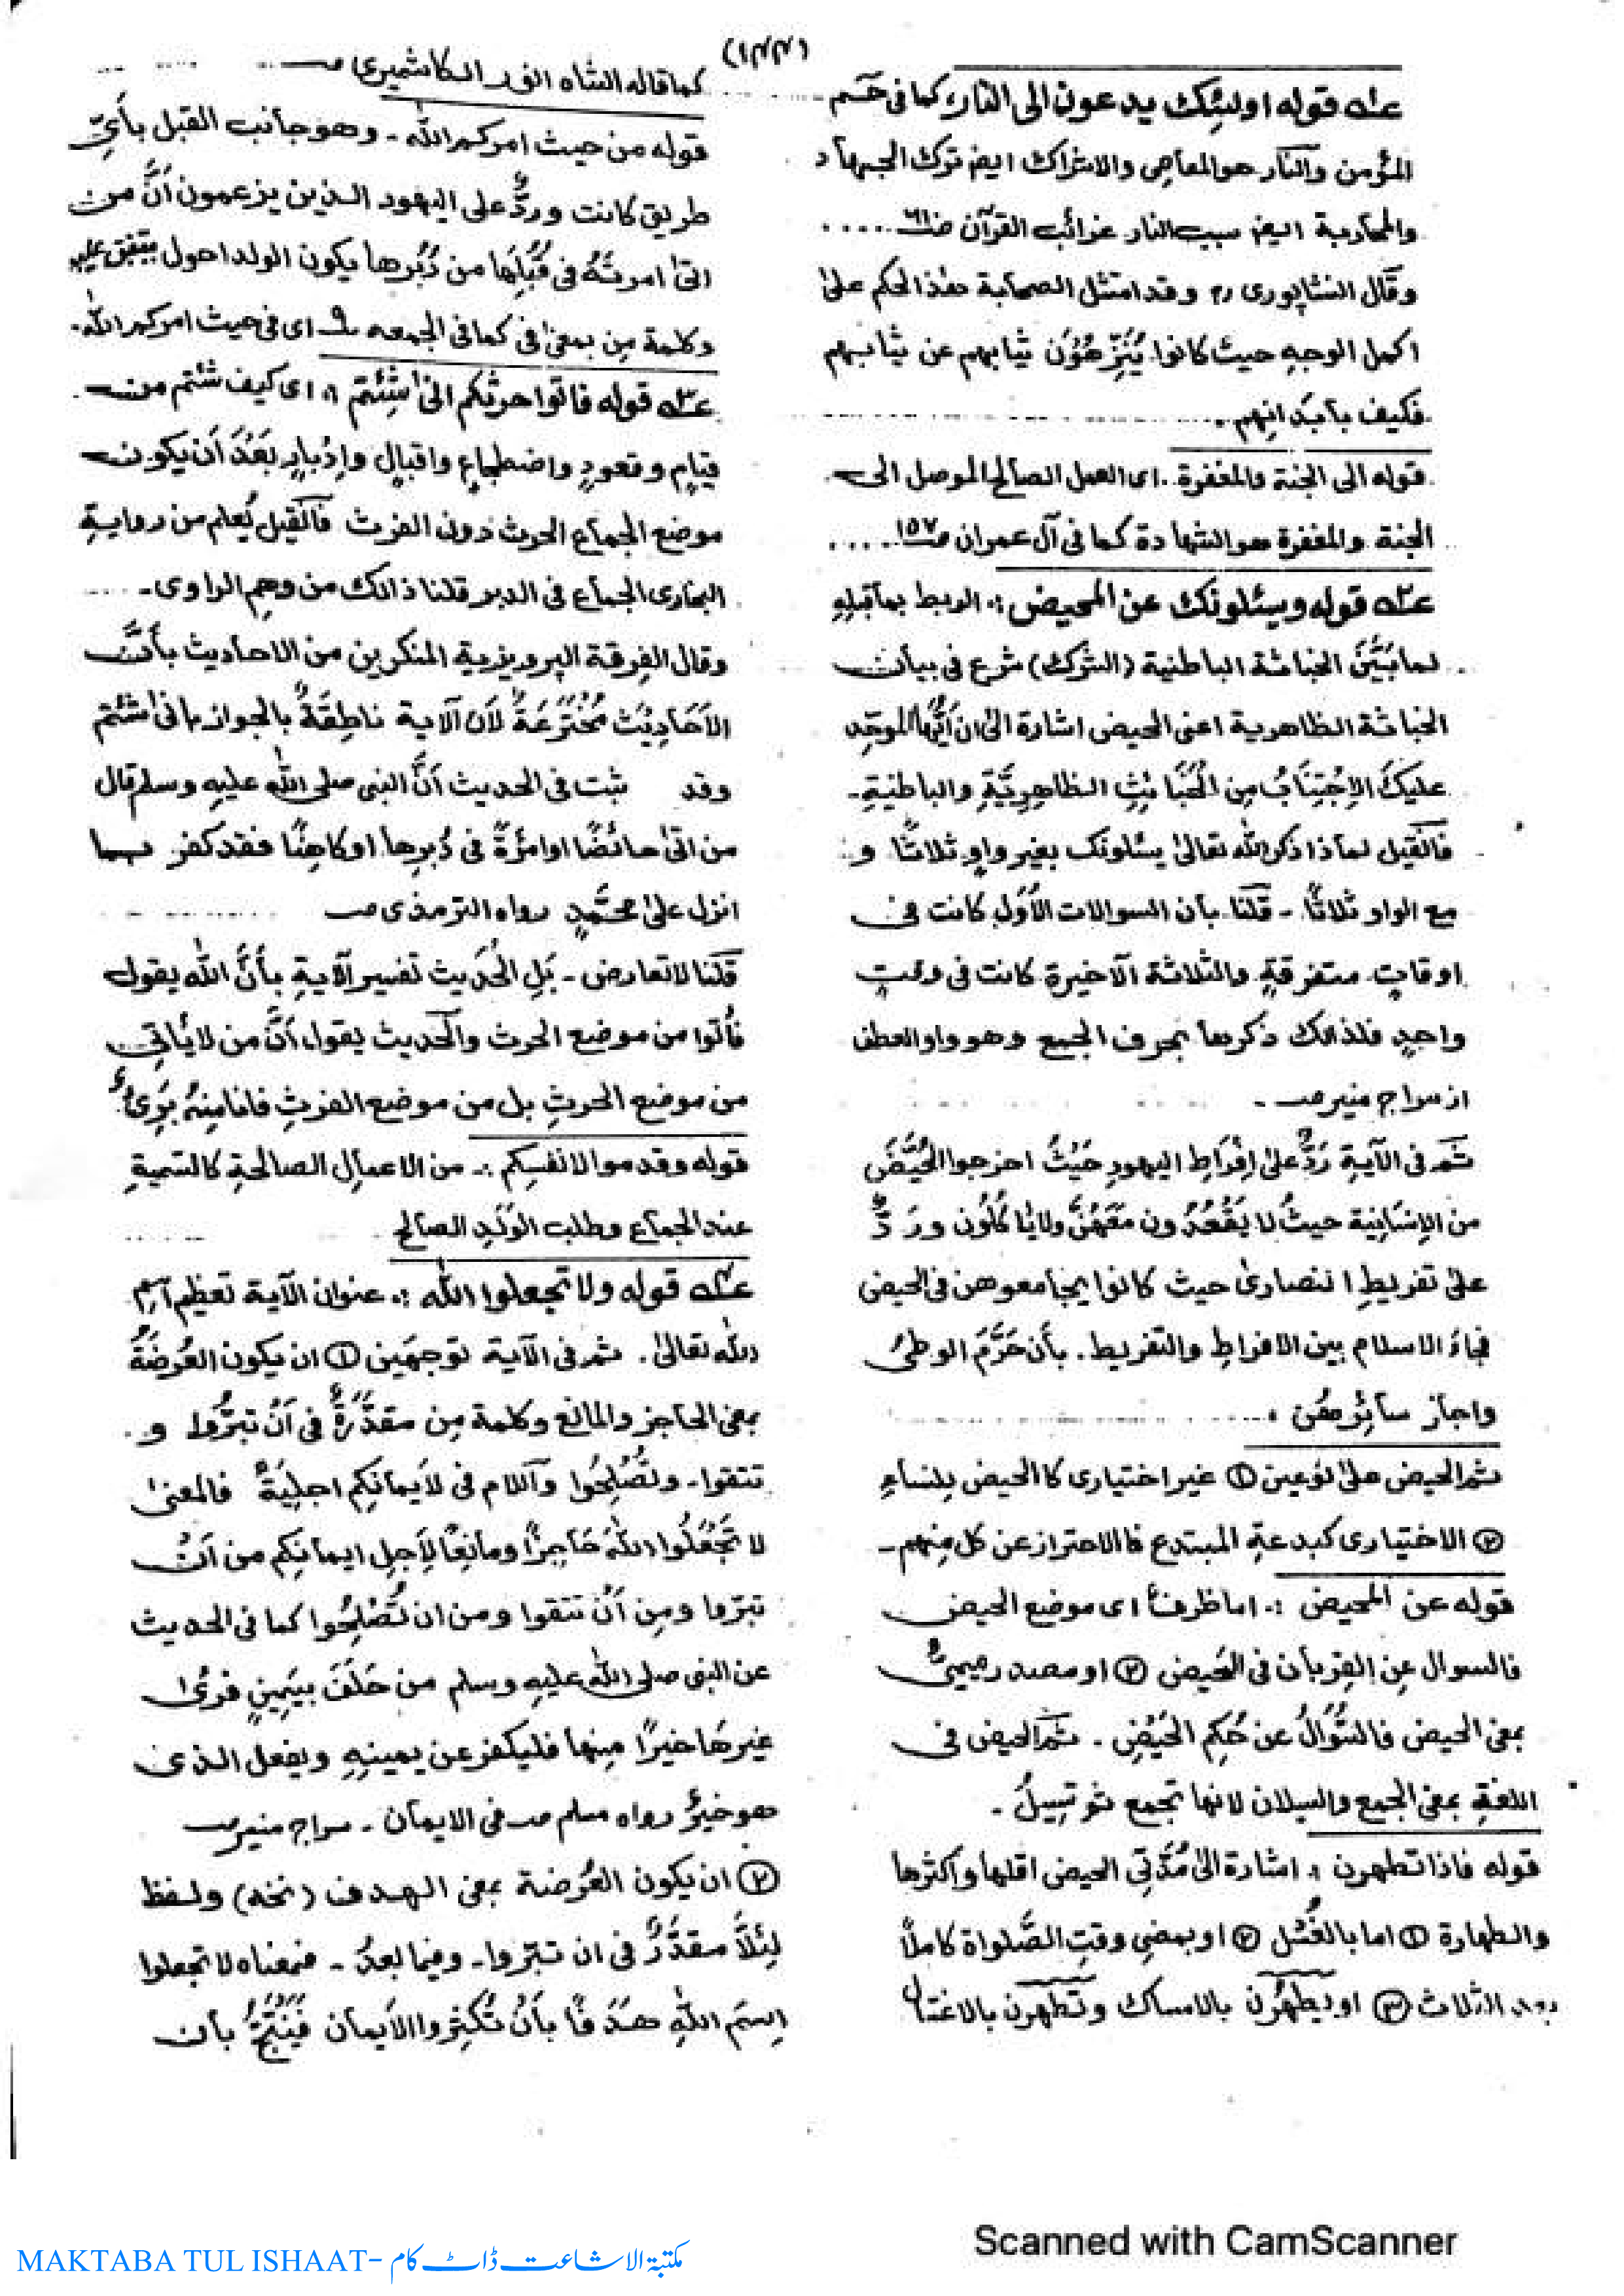 (١٣٣)
عـ١ـه قوله اولئِك يدعون الى النار، كما فى حٓم
المؤمن والنار هو المعاصى والاشراك ايضا ترك الجهاد
والمحاربة ايضا سبب النار غرائب القرآن
وقال النشاپورى رح وقد امتثل الصحابة هذا الحكم علىٰ
اكمل الوجهِ حيث كانوا يُنَزِّهُوْنَ ثيابهم عن ثيابهم
فكيف بأبدانِهم.
قوله الى الجنة والمغفرة. اى العمل الصالح الموصل الى
الجنة والمغفرة هو الشهادة كما فى آل عمران صـ١٥٧
عـ٢ـه قوله ويسئلونك عن المحيض :. الربط بماقبلِهِ
لما بَيَّنَ الخباثة الباطنية (الشرك) شرع فى بيان
الخباثة الظاهرية اعنى الحيض اشارة الىٰ ان اَيُّها الموحِّد
عليكَ الاِجْتِنَابُ مِن الْخَبَائِثِ الظاهِرِيَّةِ والباطنيةِ۔
فاَلْقيل لماذا ذكر الله تعالىٰ يسئلونك بغير واوٍ ثلاثًا و
مع الواو ثلاثًا۔ قلنا بأن السوالات الاُوَل كانت فى
اوقاتٍ متفرقةٍ والثلاثة الآخيرة كانت فى وقتٍ
واحدٍ فلذالك ذكرها بحرف الجمع وهو واو العطف
از سراج منير صـ
ثم فى الآيةِ رَدٌّ علىٰ اِفْرَاطِ اليهودِ حَيْثُ اخرجوا الْحُيَّضَ
من الاِنسَانِية حيثُ لا يَقْعُدُون مَعَهُنَّ ولا يأكُلُون ورَدٌّ
علىٰ تفريطِ النصارىٰ حيث كانوا يجامعوهن فى الحيض
فجاءَ الاسلام بين الافراطِ والتفريط. بأن حَرَّمَ الوطئ
واجاز سائِرهُن.
ثم الحيض علىٰ نوعين ① غير اختيارى كا الحيض لِلنساءِ
② الاختيارى كبدعةِ المبتدع فالاحتراز عن كلٍ مِنهم۔
قوله عن المحيض :. اما ظرف اى موضع الحيض
فالسوال عنِ القِربان فى الحَيض ② او مصدر ميمىٌ
بمعنى الحيض فالسُّوَالُ عن حُكِم الْحَيْضِ. ثمّ الحيض فى
اللغةِ بمعنى الجمع والسيلان لانها تجمع ثم تسِيلُ۔
قوله فاذا تطهرن : اشارة الىٰ مُدَّتِى الحيض اقلها واكثرها
والطهارة ① اما بالغُسْل ② او بمضىِ وقتِ الصَّلواة كاملًا
بعد الثلاث ③ او يَطهُرْن بالامساك وتَطَهرْن بالاغتسال
كما قاله الشاه انور الكاشميرى صـ
قوله من حيث امركم الله۔ وهو جانب القبل بأىِّ
طريق كانت وردٌّ على اليهود الذين يزعمون اَنَّ من
اتىٰ امرئتهُ فى قُبُلِهَا من دُبُرِها يكون الولد احول يتفق عليه
وكلمة مِن بمعنىٰ فى كما فى الجمعه ـ٩ اى فى حيث امركم الله.
عـ٣ـه قوله فاتوا حرثكم انىٰ شِئتم :. اى كيف شئتم من
قيامٍ وقعودٍ واضطجاعٍ واقبالٍ واِدْبارٍ بَعْدَ اَن يكون
موضع الجماع الحرث دون الفرث فاَلقيل يُعلم من روايةِ
البخارى الجماع فى الدبر قلنا ذالك من وهِم الراوى۔
وقال الفِرقة الپرويزية المنكرين من الاحاديث بأنَّ
الاَحَادِيْثَ مُخْتَرَعَةٌ لاَن الآية ناطِقَةٌ بالجواز بانىٰ شئتم
وقد ثبت فى الحديث اَنَّ النبى صلى الله عليهِ وسلم قال
من اتىٰ حائضًا او امرْةً فى دُبرِها او كاهِنًا فقد كفر بما
انزل علىٰ محمَّدٍ رواه الترمذى صـ
قلنا لا تعارض۔ بَلِ الْحَدِيث تفسير الآيةِ بأنَّ الله يقول
فأتوا من موضع الحرث والحديث يقول اَنَّ من لا يأتى
من موضع الحرثِ بل من موضع الفرثِ فانا مِنهُ بَرِئٌ
قوله وقدموا لانفسِكم :۔ من الاعمالِ الصالحةِ كالتسميةِ
عند الجماع وطلب الوَلَدِ الصالح
عـ٤ـه قوله ولا تجعلوا الله :. عنوان الآية تعظيم اسم
الله تعالىٰ. ثم فى الآية توجِهَين ① ان يكون العُرضَةُ
بمعنى الحاجز والمانع وكلمة مِن مقدَّرَةٌ فى اَنْ تبرُّوا و
تتقوا۔ وتُصْلِحُوا واللام فى لاَيمانِكم اجلِيَةٌ فالمعنىٰ
لا تَجْعَلُوا اللهَ حَاجِزًا ومانِعًا لِاَجلِ ايمانِكم من اَنْ
تبرّوا ومِن اَنْ تتقوا ومن ان تُصْلِحُوا كما فى الحديث
عن النبى صلى الله عليهِ وسلم من حَلَفَ بيَمِينٍ فرئىٰ
غيرهَا خيرًا مِنها فليكفر عن يمينِهِ ويفعل الذى
هو خيرٌ رواه مسلم صـ فى الايمان۔ سراج منير صـ
② ان يكون العُرضة بمعنى الهدف (نخه) ولفظ
لِئلاَّ مقدَّرٌ فى ان تبرّوا۔ وفيما بعدُ۔ فمعناه لا تجعلوا
اِسمَ اللهِ هَدَفًا بأَنْ تُكثِروا الاَيمان بأن
Scanned with CamScanner
MAKTABA TUL ISHAAT- مكتبة الاشاعت ڈاٹ کام